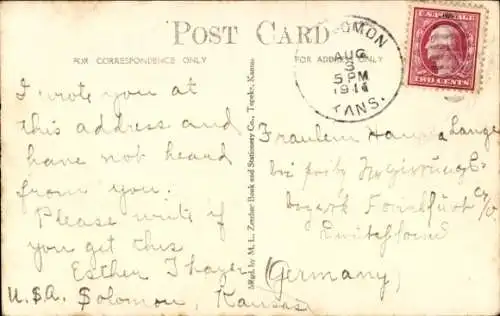 POST CARD
FOR CORRESPONDENCE ONLY
FOR ADDRESS ONLY
OMON
AUG
3
5 PM
1914
KANS.
TWO CENTS
I wrote you at
this address and
have not heard
from you.
Please write if
you get this
Esther Thayer
U.S.A. Solomon, Kansas
M. L. Zercher Book and Stationery Co., Topeka, Kansas
Fraulein Hanna Lange
bei
bezirk Frankfurt a/O
Deutschland
(Germany)